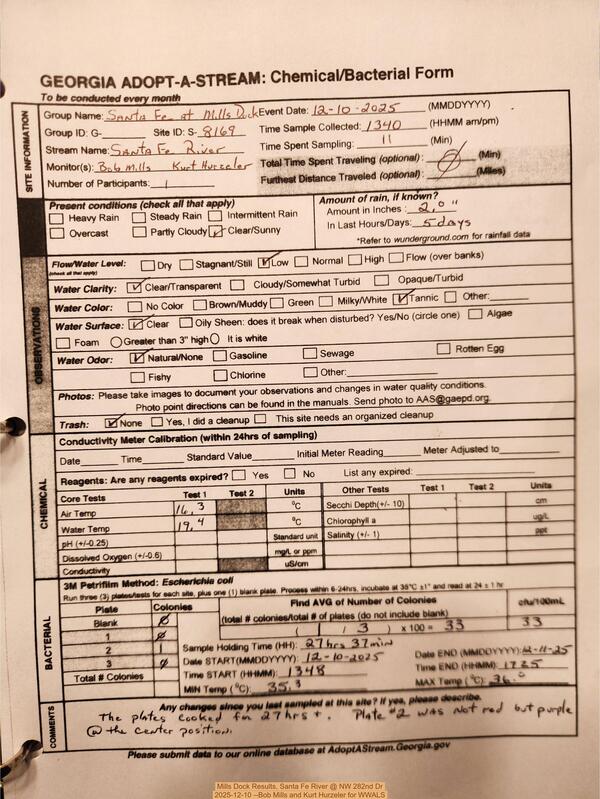 GEORGIA ADOPT-A-STREAM: Chemical/Bacterial Form
To be conducted every month
SITE INFORMATION
Group Name: Santa Fe at Mills Dock Event Date: 12-10-2025 (MMDDYYYY)
Group ID: G- Site ID: S- 8169 Time Sample Collected: 1340 (HHMM am/pm)
Stream Name: Santa Fe River Time Spent Sampling: 11 (Min)
Monitor(s): Bob Mills Kurt Hurzeler Total Time Spent Traveling (optional): (Min)
Number of Participants: 1 Furthest Distance Traveled (optional): (Miles)
Present conditions (check all that apply) Amount of rain, if known?
Heavy Rain Steady Rain Intermittent Rain Amount in Inches: 2.0"
Overcast Partly Cloudy Clear/Sunny In Last Hours/Days: 5 days
*Refer to wunderground.com for rainfall data
OBSERVATIONS
Flow/Water Level: Dry Stagnant/Still Low Normal High Flow (over banks)
(check all that apply)
Water Clarity: Clear/Transparent Cloudy/Somewhat Turbid Opaque/Turbid
Water Color: No Color Brown/Muddy Green Milky/White Tannic Other:
Water Surface: Clear Oily Sheen: does it break when disturbed? Yes/No (circle one) Algae
Foam Greater than 3" high It is white
Water Odor: Natural/None Gasoline Sewage Rotten Egg
Fishy Chlorine Other:
Photos: Please take images to document your observations and changes in water quality conditions.
Photo point directions can be found in the manuals. Send photo to AAS@gaepd.org.
Trash: None Yes, I did a cleanup This site needs an organized cleanup
CHEMICAL
Conductivity Meter Calibration (within 24hrs of sampling)
Date Time Standard Value Initial Meter Reading Meter Adjusted to
Reagents: Are any reagents expired? Yes No List any expired:
Core Tests Test 1 Test 2 Units Other Tests Test 1 Test 2 Units
Air Temp 16.3 °C Secchi Depth(+/- 10) cm
Water Temp 19.4 °C Chlorophyll a ug/L
pH (+/-0.25) Standard unit Salinity (+/- 1) ppt
Dissolved Oxygen (+/-0.6) mg/L or ppm
Conductivity uS/cm
BACTERIAL
3M Petrifilm Method: Escherichia coli
Run three (3) plates/tests for each site, plus one (1) blank plate. Process within 6-24hrs, incubate at 35°C ±1° and read at 24 ± 1 hr
Plate Colonies Find AVG of Number of Colonies cfu/100mL
Blank 0 (total # colonies/total # of plates (do not include blank)
1 0 ( / 3 ) x 100 = 33 33
2 1 Sample Holding Time (HH): 27hrs 37min
3 0 Date START(MMDDYYYY): 12-10-2025 Date END (MMDDYYYY): 12-11-25
Total # Colonies Time START (HHMM): 1348 Time END (HHMM): 1725
MIN Temp (°C): 35.3 MAX Temp (°C): 36.0
COMMENTS
Any changes since you last sampled at this site? If yes, please describe.
The plates cooked for 27hrs+. Plate #2 was not red but purple
@ the center position.
Please submit data to our online database at AdoptAStream.Georgia.gov
Mills Dock Results, Santa Fe River @ NW 282nd Dr
2025-12-10 --Bob Mills and Kurt Hurzeler for WWALS